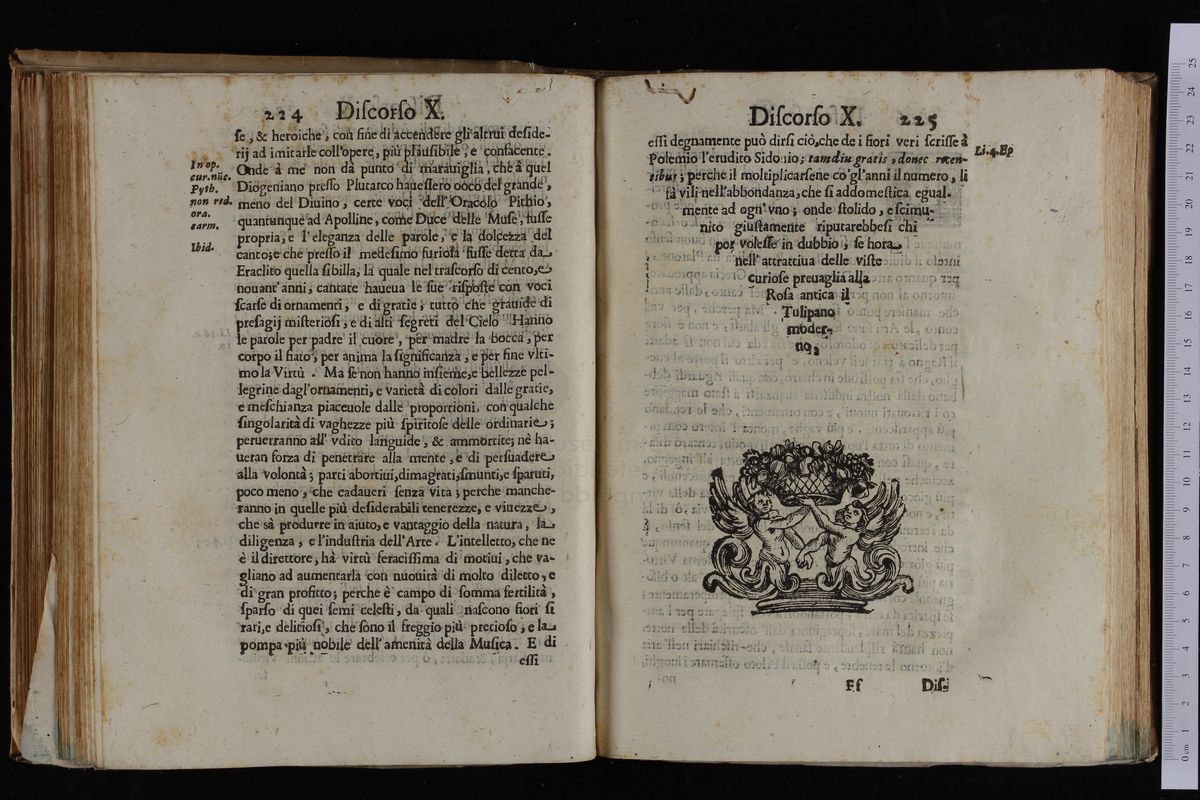 224 Diſcorſo X.
ſe, & heroiche, con fine di accendere gli altrui deſide-
rij ad imitarle coll'opere, più plauſibile, e confacente.
Onde à me non dà punto di marauiglia, che à quel
Diogeniano preſſo Plutarco haueſſero poco del grande,
meno del Diuino, certe voci dell'Oracolo Pithio,
quantunque ad Apolline, come Duce delle Muſe, fuſſe
propria, e l'eleganza delle parole, e la dolcezza del
canto; e che preſſo il medeſimo furioſa fuſſe detta da
Eraclito quella ſibilla, la quale nel traſcorſo di cento, e
nouant'anni, cantate haueua le ſue riſpoſte con voci
ſcarſe di ornamenti, e di gratie, tutto che grauide di
preſagij miſterioſi, e di alti ſegreti del Cielo Hanno
le parole per padre il cuore, per madre la bocca, per
corpo il fiato, per anima la ſignificanza, e per fine vlti-
mo la Virtù. Ma ſe non hanno inſieme, e bellezze pel-
legrine dagl'ornamenti, e varietà di colori dalle gratie,
e meſchianza piaceuole dalle proportioni, con qualche
ſingolarità di vaghezze più ſpiritoſe delle ordinarie;
perueranno all'vdito languide, & ammortite; nè ha-
ueran forza di penetrare alla mente, e di perſuadere
alla volontà; parti abortiui, dimagrati, ſmunti, e ſparuti,
poco meno, che cadaueri ſenza vita; perche manche-
ranno in quelle più deſiderabili tenerezze, e viuezze,
che sà produrre in aiuto, e vantaggio della natura, la
diligenza, e l'induſtria dell'Arte. L'intelletto, che ne
è il direttore, hà virtù feraciſſima di motiui, che va-
gliano ad aumentarla con nuouità di molto diletto, e
di gran profitto; perche è campo di ſomma fertilità,
ſparſo di quei ſemi celeſti, da quali naſcono fiori ſi
rari, e delitioſi, che ſono il freggio più pretioſo, e la
pompa più nobile dell'amenità della Muſica. E di
eſſi
In op.
cur. nūc.
Pyth.
non red.
ora.
carm.
Ibid.
Diſcorſo X. 225
eſſi degnamente può dirſi ciò, che de i fiori veri ſcriſſe à
Polemio l'erudito Sidonio; tamdiu gratis, donec recen-
tibus; perche il moltiplicarſene cō gl'anni il numero, li
fà vili nell'abbondanza, che ſi addomeſtica egual-
mente ad ogn'vno; onde ſtolido, e ſcimu-
nito giuſtamente riputarebbeſi chi
por voleſſe in dubbio, ſe hora
nell'attrattiua delle viſte
curioſe preuaglia alla
Roſa antica il
Tulipano
moder-
no,
Li. 4. Ep
Ff Diſ-